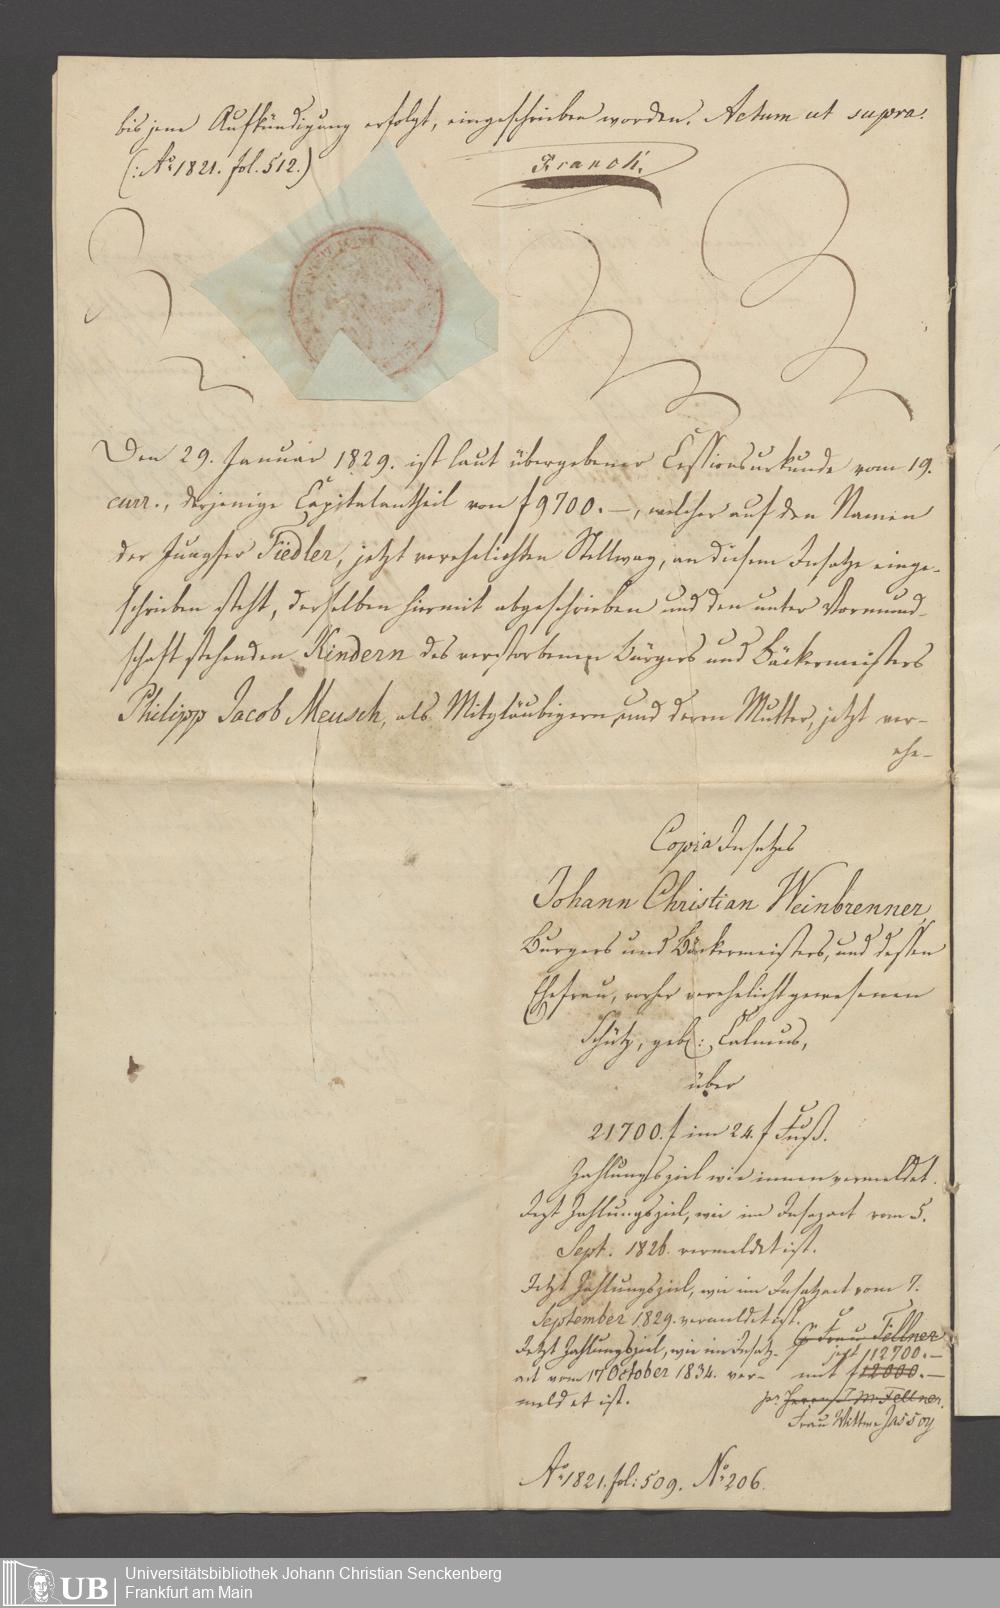 bis jene Aufkündigung erfolgt, eingeschrieben worden. Actum ut supra.
(: Ao 1821. fol. 512.)
Den 29. Januar 1829. ist laut übergebener Cessionsurkunde vom 19.
curr., derjenige Capitalantheil von f 9700.—, welcher auf den Namen
der Jungfer Fiedler, jetzt verehelichten Stellwag, an diesem Insatze einge-
schrieben steht, derselben hiermit abgeschrieben und den unter Vormund-
schaft stehenden Kindern des verstorbenen Bürgers und Bäckermeisters
Philipp Jacob Meusch, als Mitgläubigern, und deren Mutter, jetzt ver-
ehe-
Copia Insatzes
Johann Christian Weinbrenner,
Burgers und Bäckermeisters, und dessen
Ehefrau, vorher verehelicht gewesenen
Schütz, geb: Calmus,
über
21700. f im 24. f Fuß.
Zahlungsziel wie innen vermeldet.
Jezt Zahlungsziel, wie im Insazact vom 5.
Sept. 1826. vermeldet ist.
Jetzt Zahlungsziel, wie im Insatzact vom 7.
September 1829. vermeldet ist.
Frau Fellner
Jetzt Zahlungsziel, wie im Insatz-
jetzt 112700.—
act vom 17 October 1834. ver-
mit f 12000.—
meldet ist.
Herrn J M Fellner.
Frau Wittwe Jassoy
Ao 1821. fol: 509. No 206.
UB
Universitätsbibliothek Johann Christian Senckenberg
Frankfurt am Main